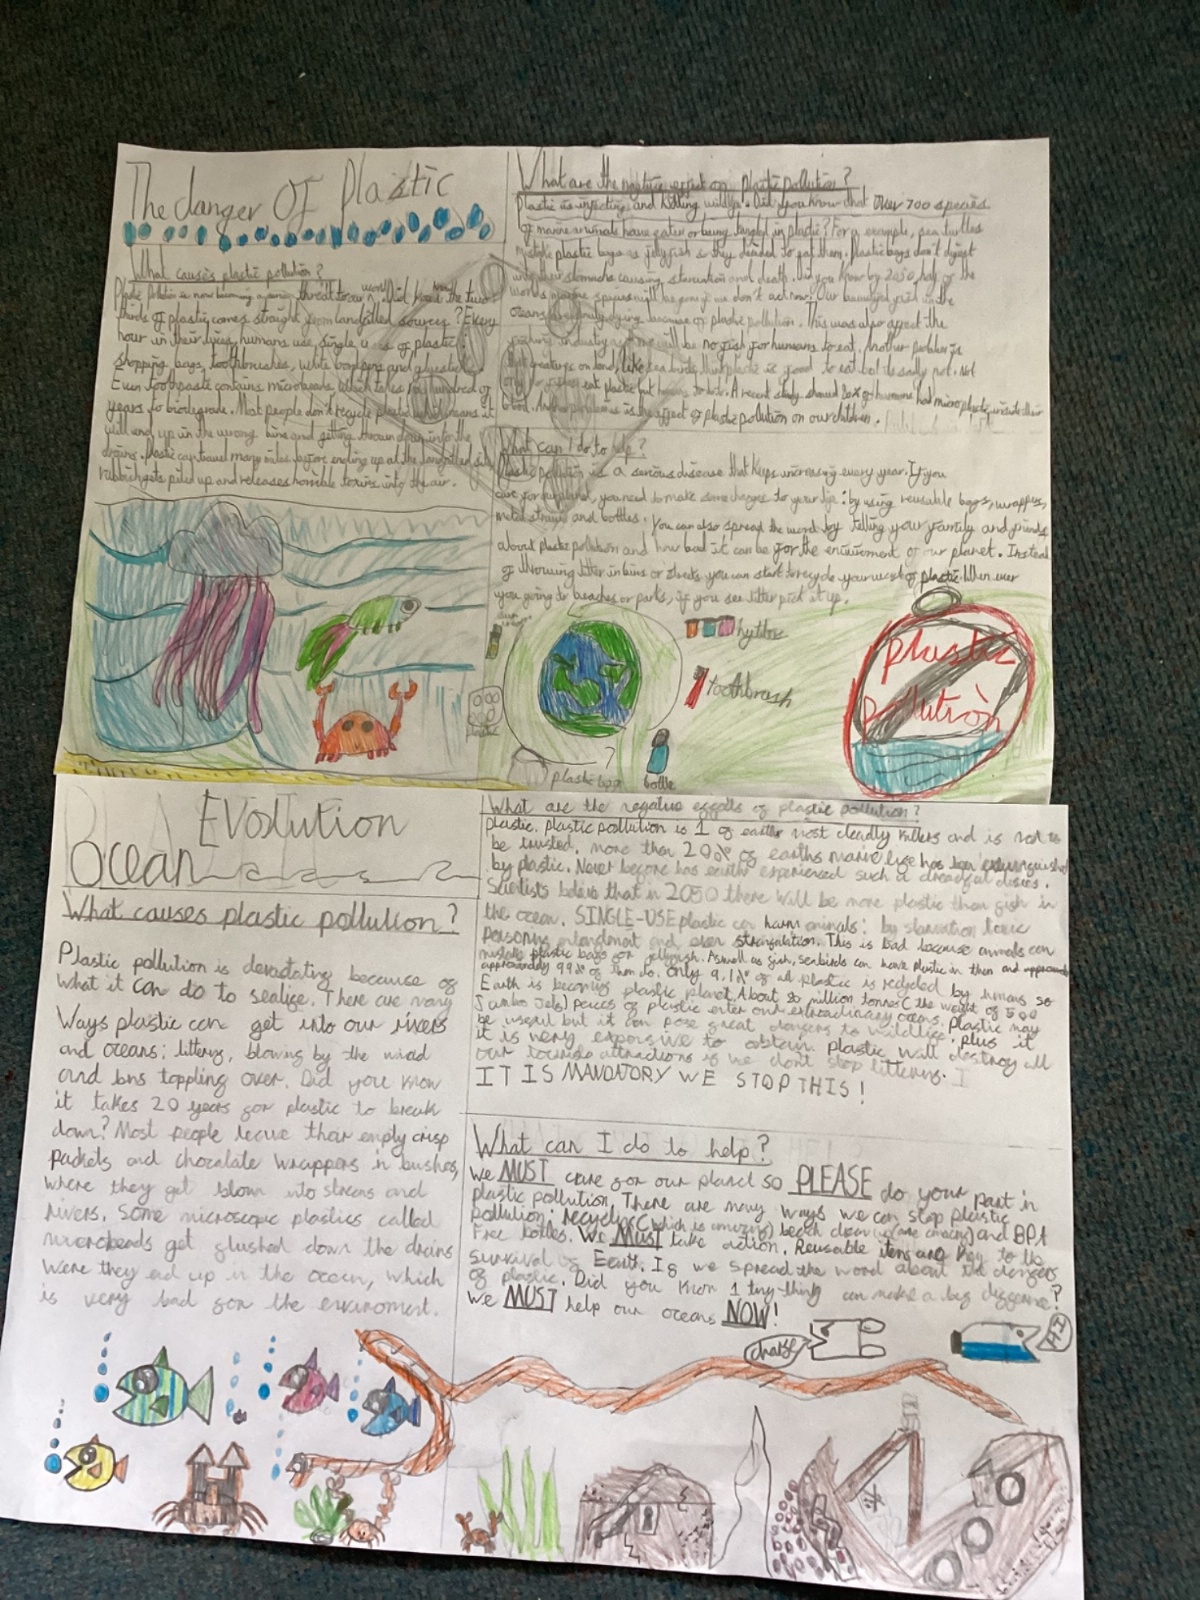 The danger Of Plastic
What causes plastic pollution?
Plastic Pollution is now becoming a major threat to our world. Did you know the two
thirds of plastic comes straight from landfilled sources? Every
hour in their lives, humans use single uses of plastic:
shopping bags, toothbrushes, white
Even toothpaste contains microbeads, which takes hundred of
years to biodegrade. Most people don't recycle plastic which means it
will end up in the wrong bins and getting thrown down into the
drains. Plastic can travel many miles before ending up at the landfilled
rubbish gets piled up and releases horrible toxins into the air.
What are the negitive effect on plastic pollution?
Plastic is injecting and killing wildlife. Did you know that over 700 species
of marine animals have eaten or being tangled in plastic? For a example, sea turtles
mistake plastic bags as jellyfish so they decided to eat them. Plastic bags don't digest
into their stomachs causing starvation and death. Did you know by 2050 half of the
worlds marine species will be gone if we don't act now? Our beautiful in the
oceans are dying because of plastic pollution. This was also affect the
fishing industry as there will be no fish for humans to eat. Another problem is
that creatures on land, like sea birds, think plastic is good to eat but it sadly not. Not
only eat plastic but humans to. A recent study should of humans had micro plastic inside their
blood. Another problem is the affect of plastic pollution on our children.
What can I do to help?
Plastic pollution is a serious disease that keeps increasing every year. If you
care for our planet, you need to make some changes to your life: by using reusable bags, wrappers,
metal straws and bottles. You can also spread the word by telling your family and friends
about plastic pollution and how bad it can be for the enviroment of our planet. Instead
of throwing litter in bins or streets, you can start to recycle your waste of plastic. When ever
you going to beaches or parks, if you see litter pick it up.
toothbrush
plastic
plastic bag
bottle
plastic
pollution
Ocean Evolution
What causes plastic pollution?
Plastic pollution is devastating because of
what it can do to sealife. There are many
ways plastic can get into our rivers
and oceans: littering, blowing by the wind
and bins toppling over. Did you know
it takes 20 years for plastic to break
down? Most people leave their empty crisp
packets and chocalate wrappers in bushes,
where they get blown into streams and
rivers. Some microscopic plastics called
microbeads get flushed down the drains
were they end up in the ocean, which
is very bad for the enviroment.
What are the negative effects of plastic pollution?
plastic. plastic pollution is 1 of earths most deadly killers and is not to
be trusted. more than 20% of earths marine life has been extinguished
by plastic. Never before has earth experienced such a dreadful
Scientists belive that in 2050 there will be more plastic than fish in
the ocean. SINGLE-USE plastic can harm animals: by starvation toxic
poisoning entanglement and even strangulation. This is bad because animals can
mistake plastic bags for jellyfish. As well as fish, seabirds can have plastic in them and
approximately 99% of them do. only 9.1% of all plastic is recycled by humans so
Earth is becoming plastic planet. About 80 million tonnes (the weight of 500
Jumbo Jets) peices of plastic enter our extraordinary oceans. Plastic may
be useful but it can pose great dangers to wildlife. plus it
it is very expensive to obtain. plastic will destroy all
our tourist attractions if we dont stop littering.
IT IS MANDATORY WE STOP THIS!
What can I do to help?
We MUST care for our planet so PLEASE do your part in
plastic pollution. There are many ways we can stop plastic
pollution: recycling (which is amazing) beach cleaning (more amazing) and BPA
Free bottles. We MUST take action. Reusable items are key to the
survival of Earth. If we spread the word about the dangers
of plastic. Did you know 1 tiny thing can make a big difference?
We MUST help our oceans NOW!
HI